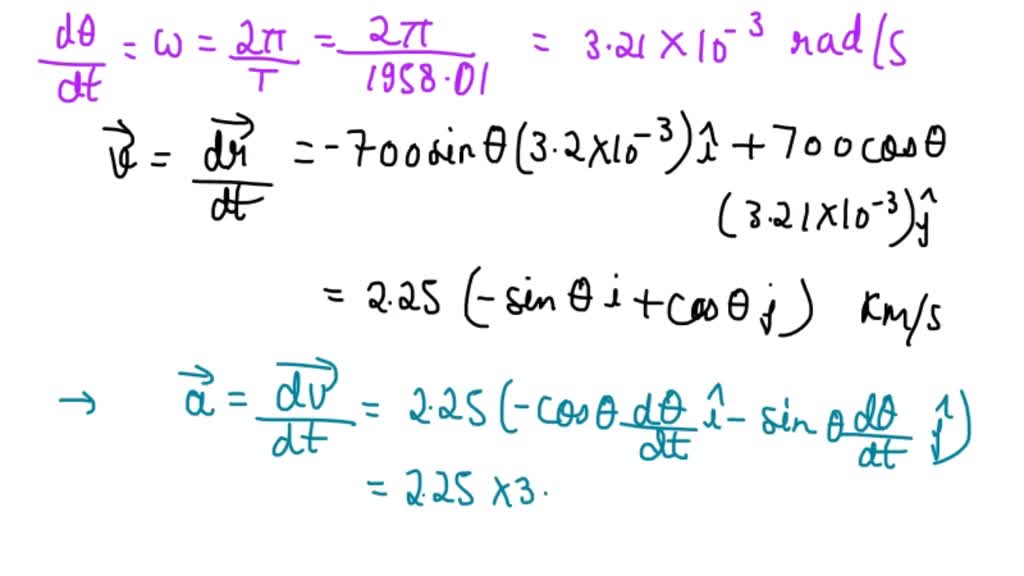 dθ/dt = ω = 2π/T = 2π/1958.01 = 3.21 × 10⁻³ rad/s
v⃗ = dr⃗/dt = -700 sin θ (3.2×10⁻³) î + 700 cos θ
(3.21×10⁻³) ŷ
= 2.25 (-sin θ i + cos θ j) km/s
→ a⃗ = dv⃗/dt = 2.25 (-cos θ dθ/dt î - sin θ dθ/dt ĵ)
= 2.25 × 3.